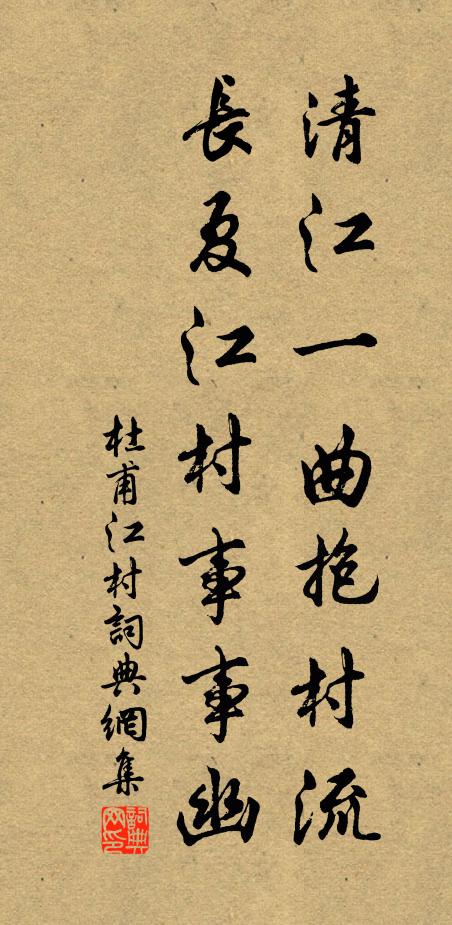 清江一曲抱村流
長夏江村事事幽
杜甫江村詞典網集
詞典網印